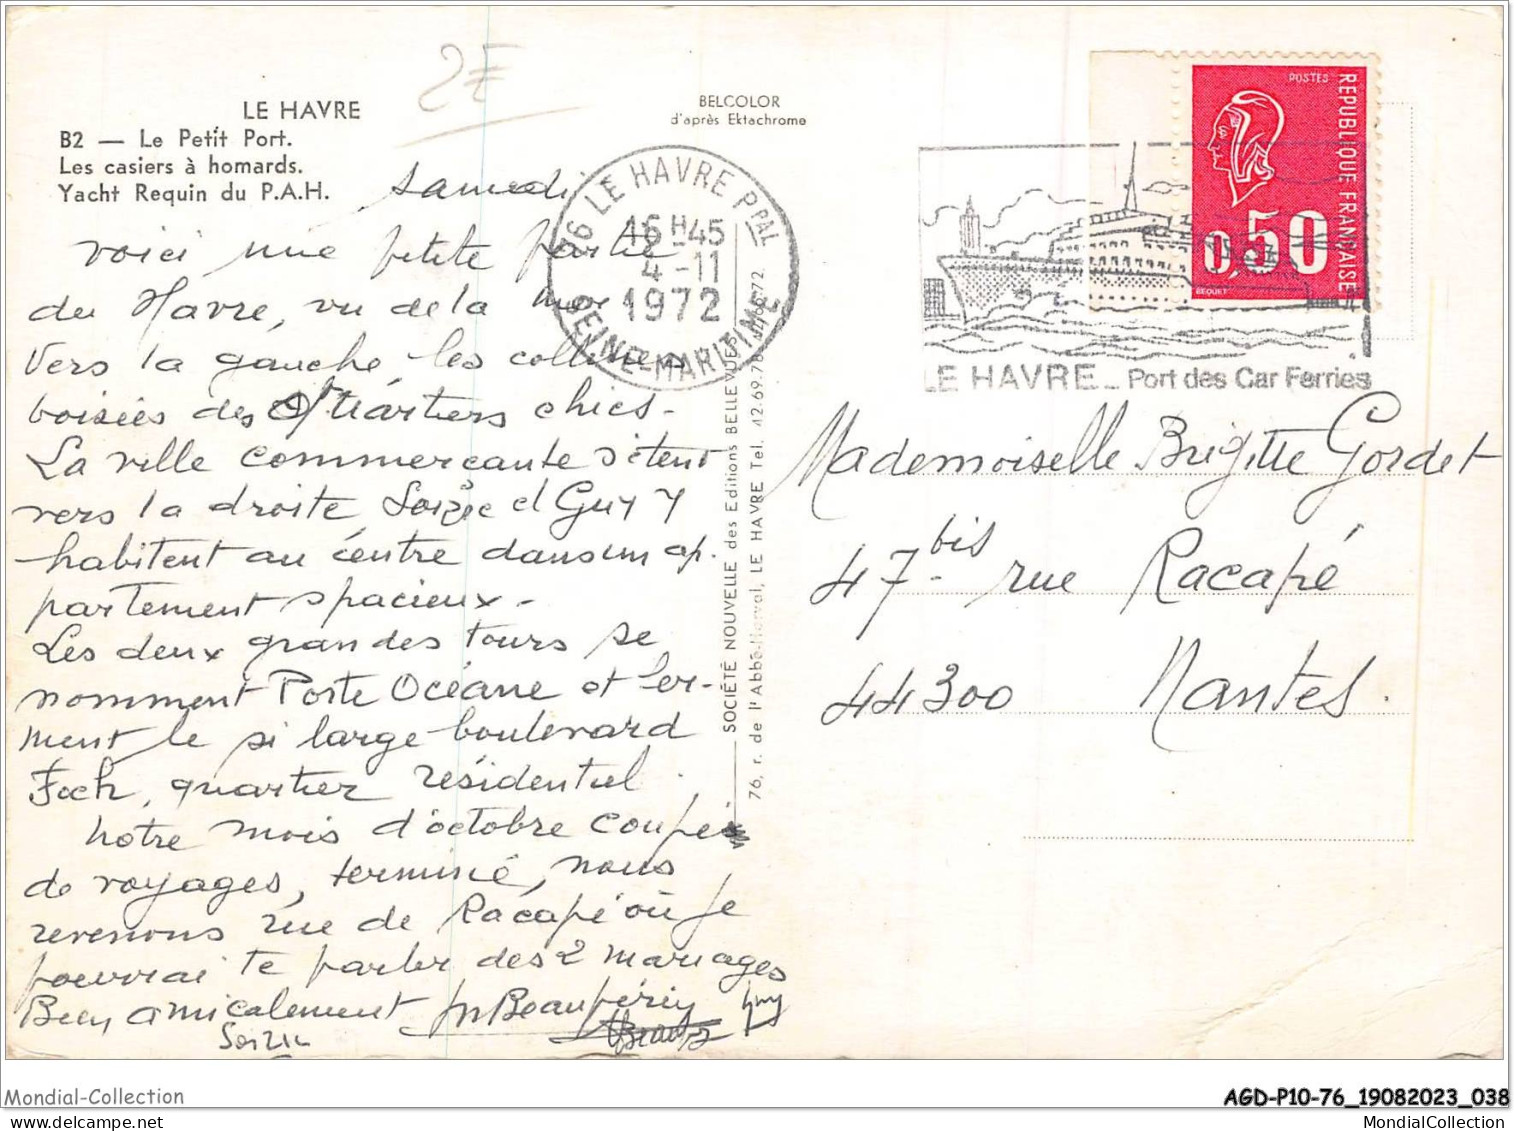 LE HAVRE
B2 — Le Petit Port.
Les casiers à homards.
Yacht Requin du P.A.H.
2E
BELCOLOR
d'après Ektachrome
76 LE HAVRE PPAL
16H45
4-11
1972
SEINE-MARITIME
POSTES
REPUBLIQUE FRANÇAISE
0,50
BEQUET
LE HAVRE _ Port des Car Ferries
samedi
voici une petite partie
du Havre, vu de la mer
Vers la gauche les collines
boisées des Quartiers chics -
La ville commerçante s'étent
vers la droite, Soizic et Guy y
habitent au centre dans un ap.
partement spacieux -
Les deux grandes tours se
nomment Porte Océane et fer-
ment le si large boulevard
Foch, quartier résidentiel.
Notre mois d'octobre coupé
de voyages, terminé, nous
revenons rue de Racapé où je
pourrai te parler des 2 mariages
Bien amicalement
Beaupérin
Guy
Soizic
SOCIÉTÉ NOUVELLE des Editions BELLE VUES
76, r. de l'Abbé-Herval, LE HAVRE Tel. 42.69.78
Mademoiselle Brigitte Gordet
47 bis rue Racapé
44300 Nantes.
Mondial-Collection
AGD-P10-76_19082023_038
www.mondial-collection.com
MondialCollection